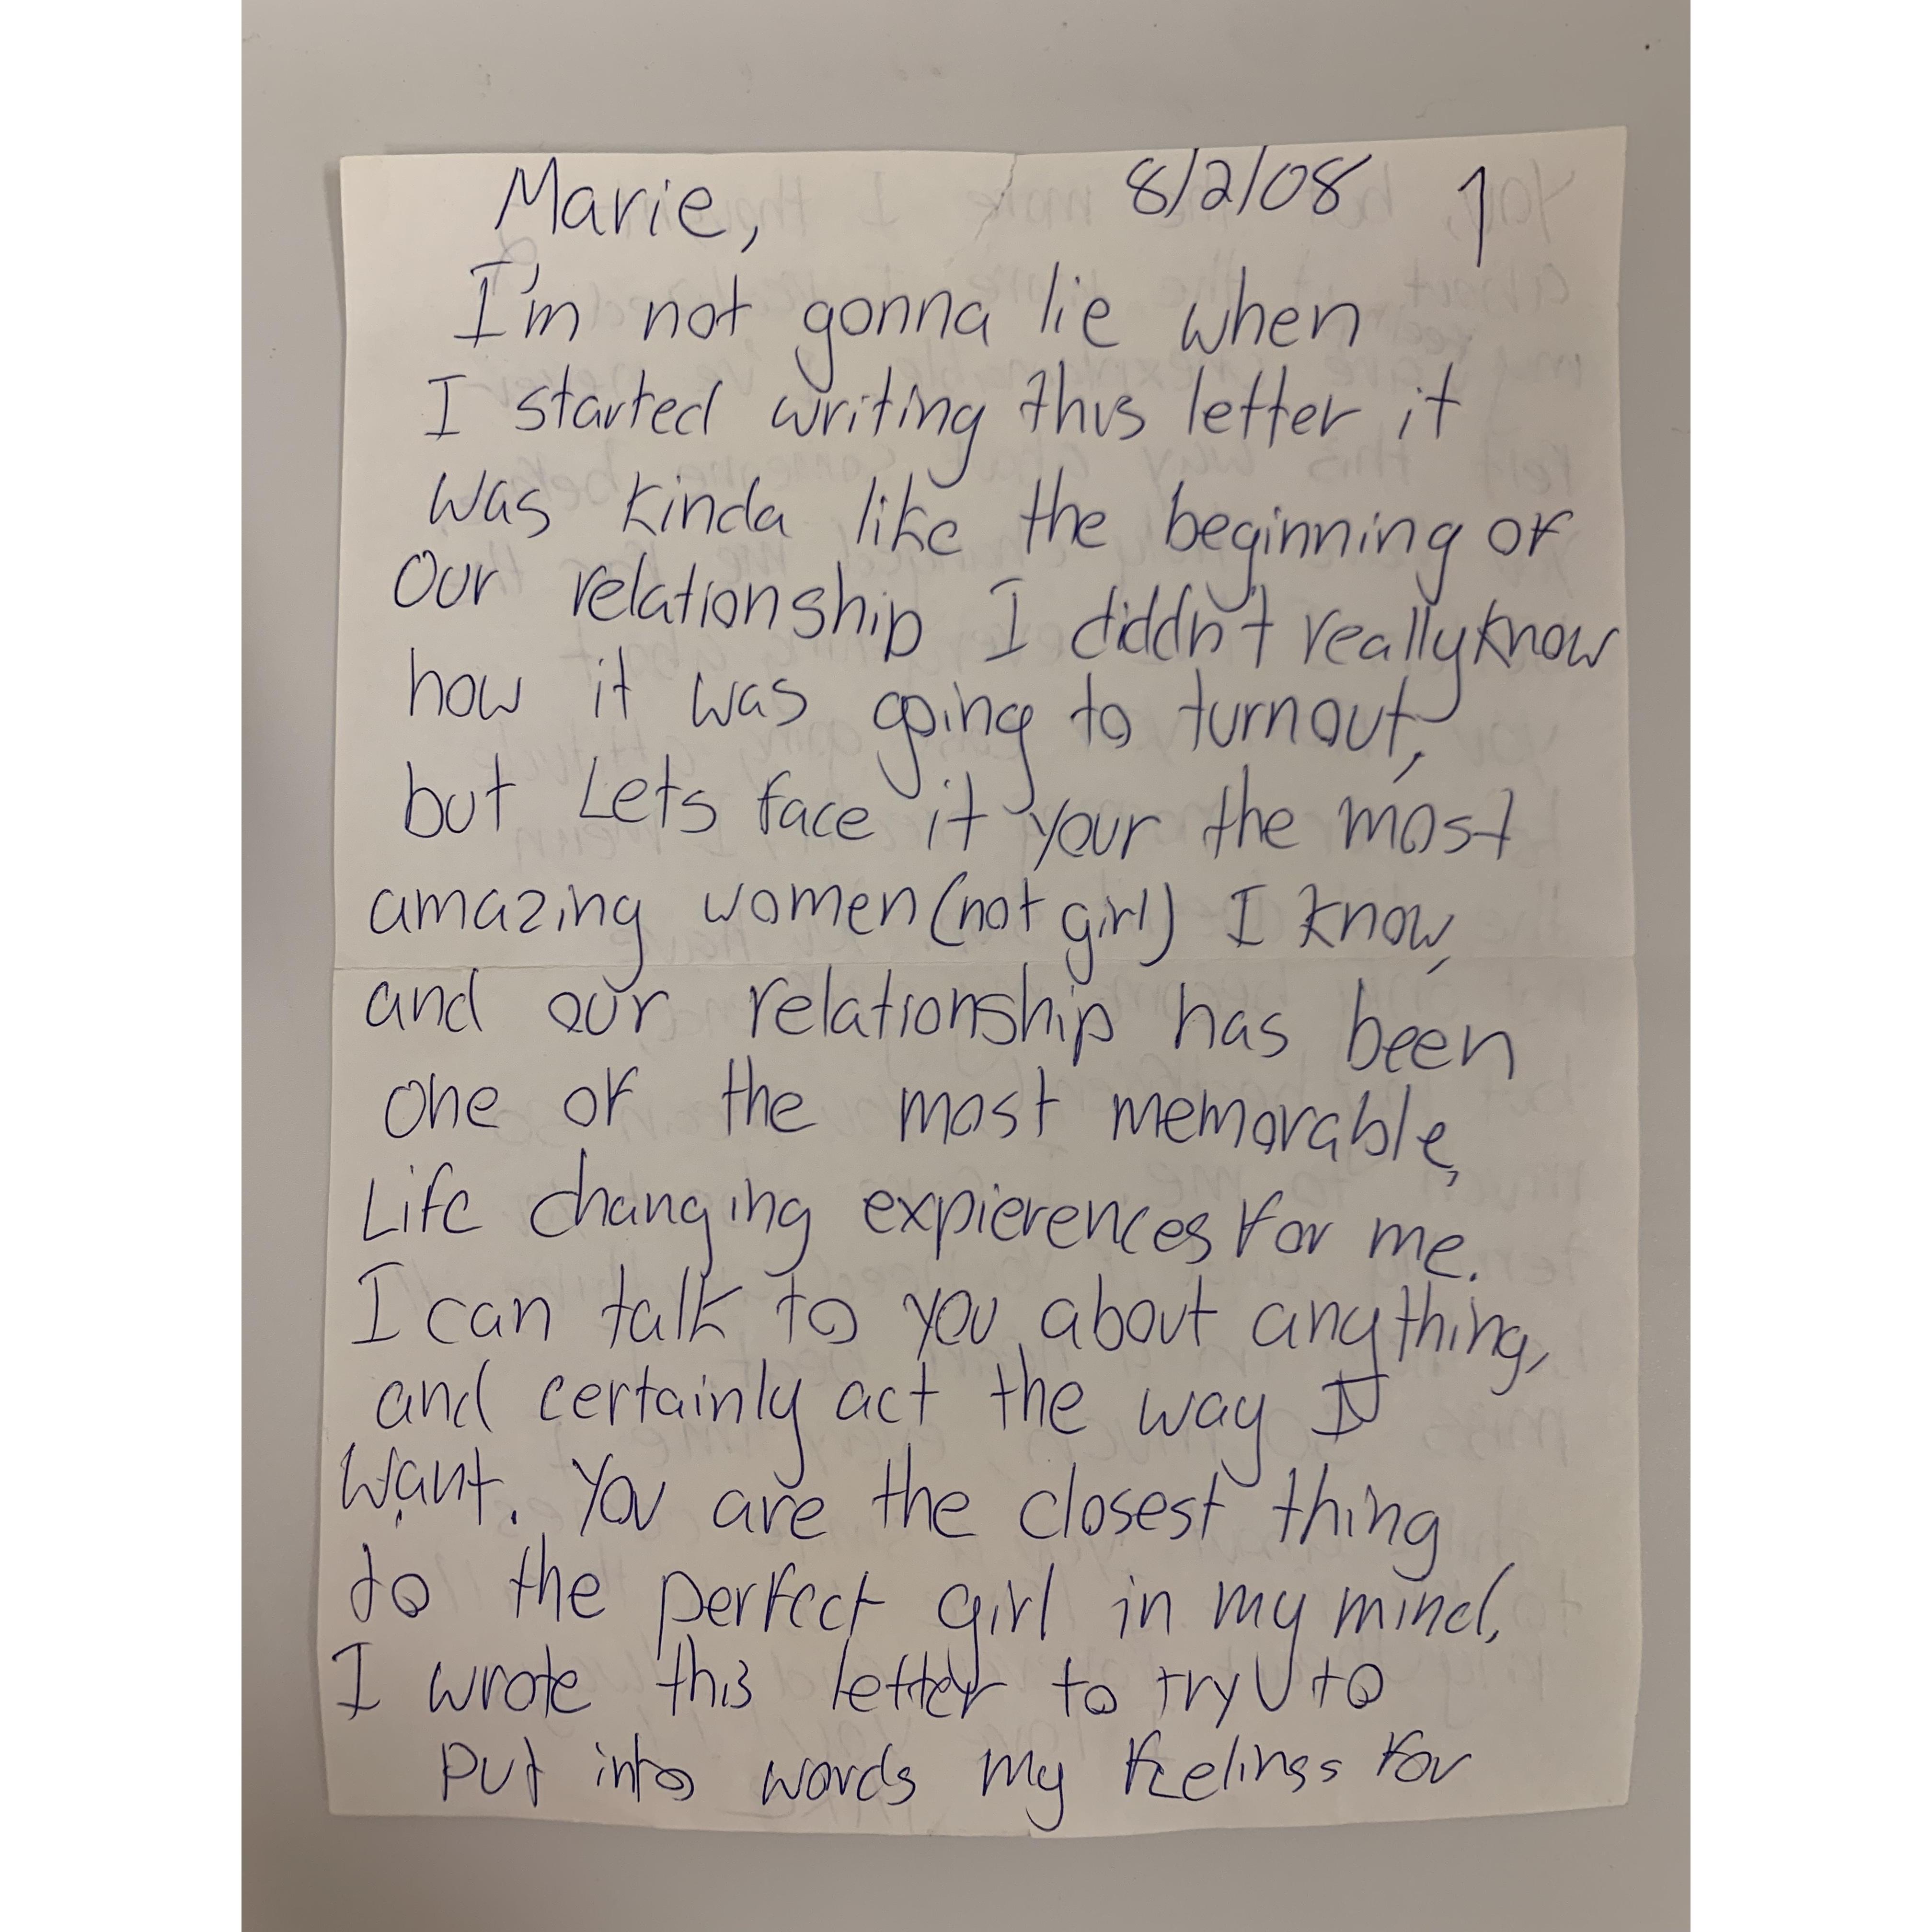 Marie, 8/2/08 1
I'm not gonna lie when
I started writing this letter it
was kinda like the beginning of
our relationship I diddn't really know
how it was going to turnout,
but Lets face it your the most
amazing women (not girl) I know,
and our relationship has been
one of the most memorable,
Life changing expierences for me.
I can talk to you about anything,
and certainly act the way I
want. You are the closest thing
to the perfect girl in my mind,
I wrote this letter to try to
put into words my feelings for